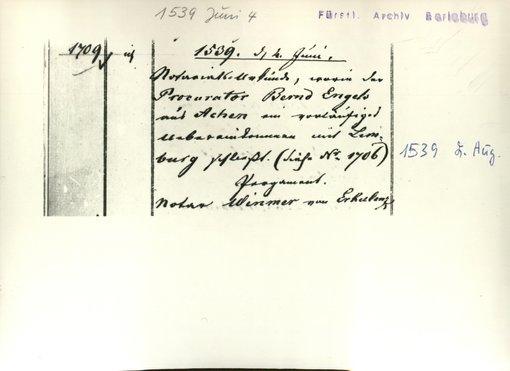 1539 Juni 4
Fürstl. Archiv Berleburg
1709
1539. d. 4. Juni.
Notariats Urkunde, worin der
Procurator Bernd Engels
aus Achen ein vorläufiges
Uebereinkommen mit Lim-
burg schließt. (siehe No. 1706)
Pergament.
Notar Winmer von Erkelenz
1539 2. Aug.